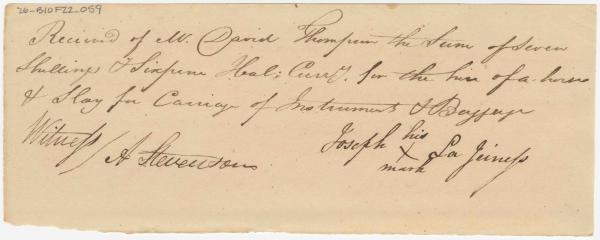 26-B10F22-059
Received of Mr. David Thompson the Sum of Seven
Shillings & Sixpence Hal: Curr.y for the hire of a horse
& Slay for Carriage of Instruments & Baggage
Witness
A Stevenson
Joseph his X mark La Jeiness